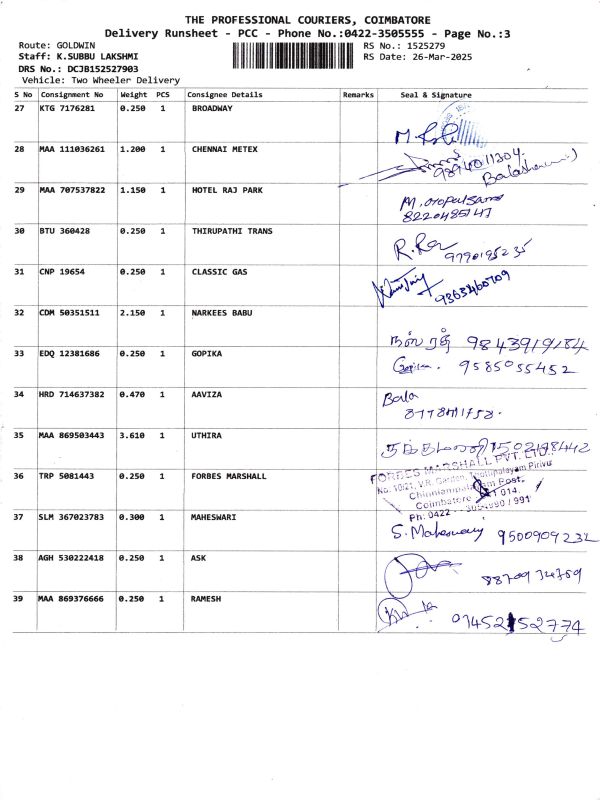 THE PROFESSIONAL COURIERS, COIMBATORE
Delivery Runsheet - PCC - Phone No.:0422-3505555 - Page No.:3
Route: GOLDWIN RS No.: 1525279
Staff: K.SUBBU LAKSHMI RS Date: 26-Mar-2025
DRS No.: DCJB152527903
Vehicle: Two Wheeler Delivery
S No Consignment No Weight PCS Consignee Details Remarks Seal & Signature
27 KTG 7176281 0.250 1 BROADWAY
28 MAA 111036261 1.200 1 CHENNAI METEX
29 MAA 707537822 1.150 1 HOTEL RAJ PARK
8220485141
30 BTU 360428 0.250 1 THIRUPATHI TRANS
9790195235
31 CNP 19654 0.250 1 CLASSIC GAS
9363460709
32 CDM 50351511 2.150 1 NARKEES BABU
9843919184
33 EDQ 12381686 0.250 1 GOPIKA
9585055452
34 HRD 714637382 0.470 1 AAVIZA Bala
35 MAA 869503443 3.610 1 UTHIRA
36 TRP 5081443 0.250 1 FORBES MARSHALL
FORBES MARSHALL PVT. LTD.
No. 10/21, V.R. Garden, Thottipalayam Pirivu
Chinniampalayam Post,
Coimbatore 014.
37 SLM 367023783 0.300 1 MAHESWARI
S. Maheswary 9500909232
38 AGH 530222418 0.250 1 ASK
39 MAA 869376666 0.250 1 RAMESH